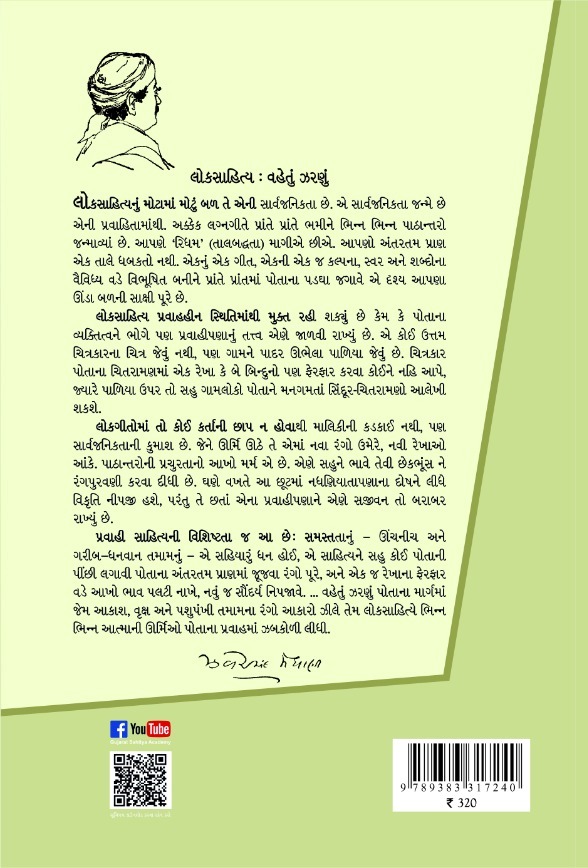 લોકસાહિત્ય : વહેતું ઝરણું
લોકસાહિત્યનું મોટામાં મોટું બળ તે એની સાર્વજનિકતા છે. એ સાર્વજનિકતા જન્મે છે
એની પ્રવાહિતામાંથી. અક્કેક લગ્નગીતે પ્રાંતે પ્રાંતે ભમીને ભિન્ન ભિન્ન પાઠાન્તરો
જન્માવ્યાં છે. આપણે ‘રિધમ’ (તાલબદ્ધતા) માગીએ છીએ. આપણો અંતરતમ પ્રાણ
એક તાલે ધબકતો નથી. એકનું એક ગીત, એકની એક જ કલ્પના, સ્વર અને શબ્દોના
વૈવિધ્ય વડે વિભૂષિત બનીને પ્રાંતે પ્રાંતમાં પોતાના પડઘા જગાવે એ દૃશ્ય આપણા
ઊંડા બળની સાક્ષી પૂરે છે.
લોકસાહિત્ય પ્રવાહહીન સ્થિતિમાંથી મુક્ત રહી શક્યું છે કેમ કે પોતાના
વ્યક્તિત્વને ભોગે પણ પ્રવાહીપણાનું તત્ત્વ એણે જાળવી રાખ્યું છે. એ કોઈ ઉત્તમ
ચિત્રકારના ચિત્ર જેવું નથી, પણ ગામને પાદર ઊભેલા પાળિયા જેવું છે. ચિત્રકાર
પોતાના ચિતરામણમાં એક રેખા કે બે બિન્દુનો પણ ફેરફાર કરવા કોઈને નહિ આપે,
જ્યારે પાળિયા ઉપર તો સહુ ગામલોકો પોતાને મનગમતાં સિંદૂર-ચિતરામણો આલેખી
શકશે.
લોકગીતોમાં તો કોઈ કર્તાની છાપ ન હોવાથી માલિકીની કડકાઈ નથી, પણ
સાર્વજનિકતાની કુમાશ છે. જેને ઊર્મિ ઊઠે તે એમાં નવા રંગો ઉમેરે, નવી રેખાઓ
આંકે. પાઠાન્તરોની પ્રચુરતાનો આખો મર્મ એ છે. એણે સહુને ભાવે તેવી છેકભૂંસ ને
રંગપુરવણી કરવા દીધી છે. ઘણે વખતે આ છૂટમાં નધણિયાતાપણાના દોષને લીધે
વિકૃતિ નીપજી હશે, પરંતુ તે છતાં એના પ્રવાહીપણાને એણે સજીવન તો બરાબર
રાખ્યું છે.
પ્રવાહી સાહિત્યની વિશિષ્ટતા જ આ છેઃ સમસ્તતાનું – ઊંચનીચ અને
ગરીબ–ધનવાન તમામનું – એ સહિયારું ધન હોઈ, એ સાહિત્યને સહુ કોઈ પોતાની
પીંછી લગાવી પોતાના અંતરતમ પ્રાણમાં જૂજવા રંગો પૂરે, અને એક જ રેખાના ફેરફાર
વડે આખો ભાવ પલટી નાખે, નવું જ સૌંદર્ય નિપજાવે. ... વહેતું ઝરણું પોતાના માર્ગમાં
જેમ આકાશ, વૃક્ષ અને પશુપંખી તમામના રંગો આકારો ઝીલે તેમ લોકસાહિત્યે ભિન્ન
ભિન્ન આત્માની ઊર્મિઓ પોતાના પ્રવાહમાં ઝબકોળી લીધી.
ઝવેરચંદ મેઘાણી
f YouTube
Gujarat Sahitya Academy
9 789383 317240
₹ 320